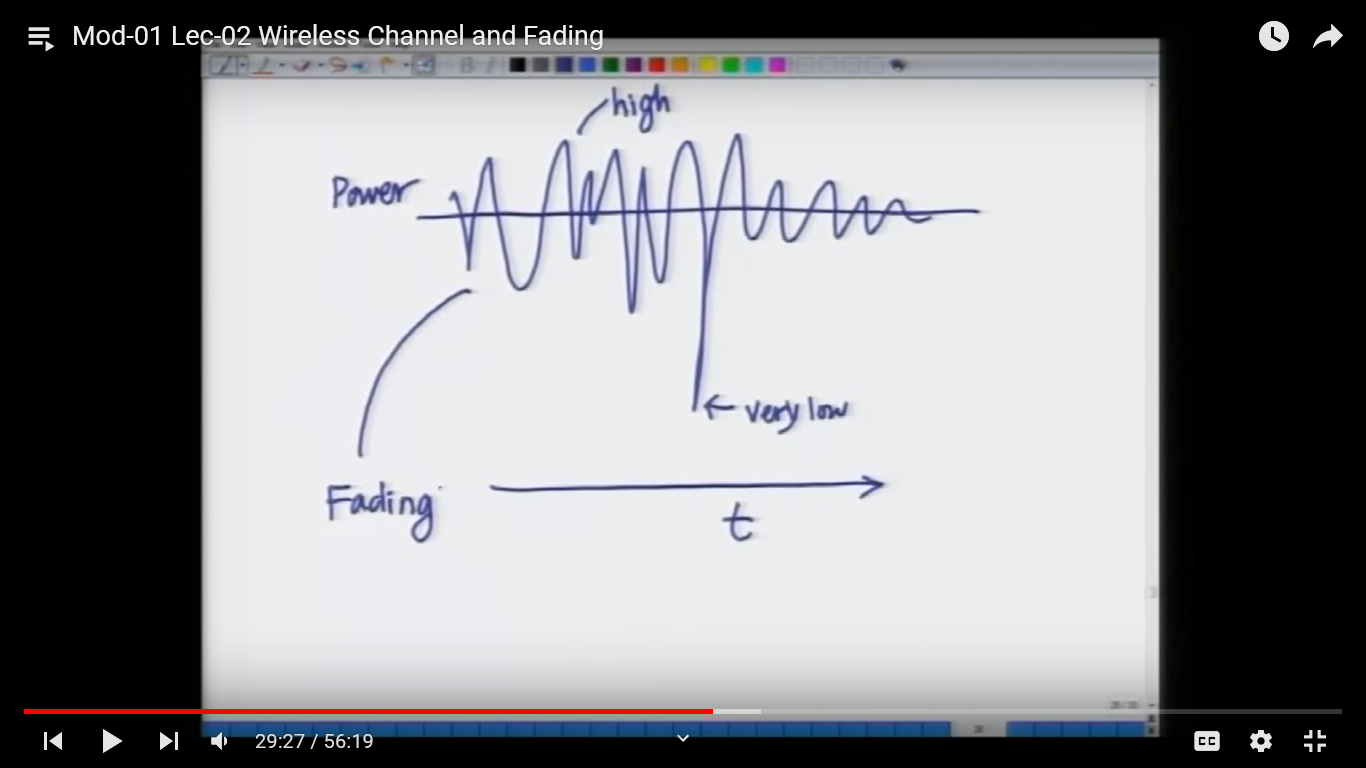 Mod-01 Lec-02 Wireless Channel and Fading
high
Power
very low
Fading
t
29:27 / 56:19
CC